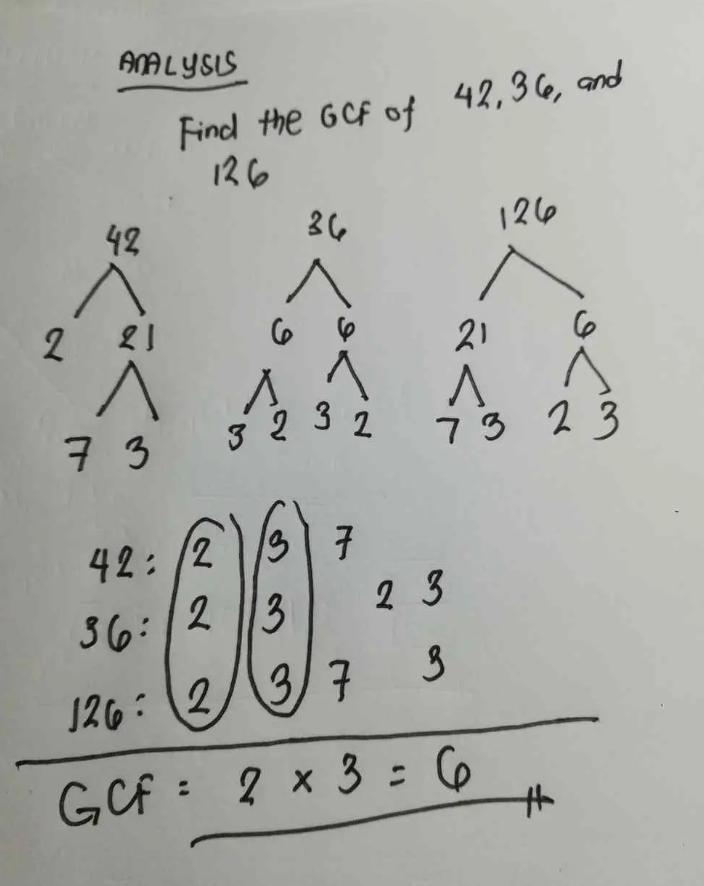 ANALYSIS
Find the GCF of 42, 36, and
126
42 36 126
2 21 6 6 21 6
7 3 3 2 3 2 7 3 2 3
42: 2 3 7
36: 2 3 2 3
126: 2 3 7 3
GCF = 2 x 3 = 6